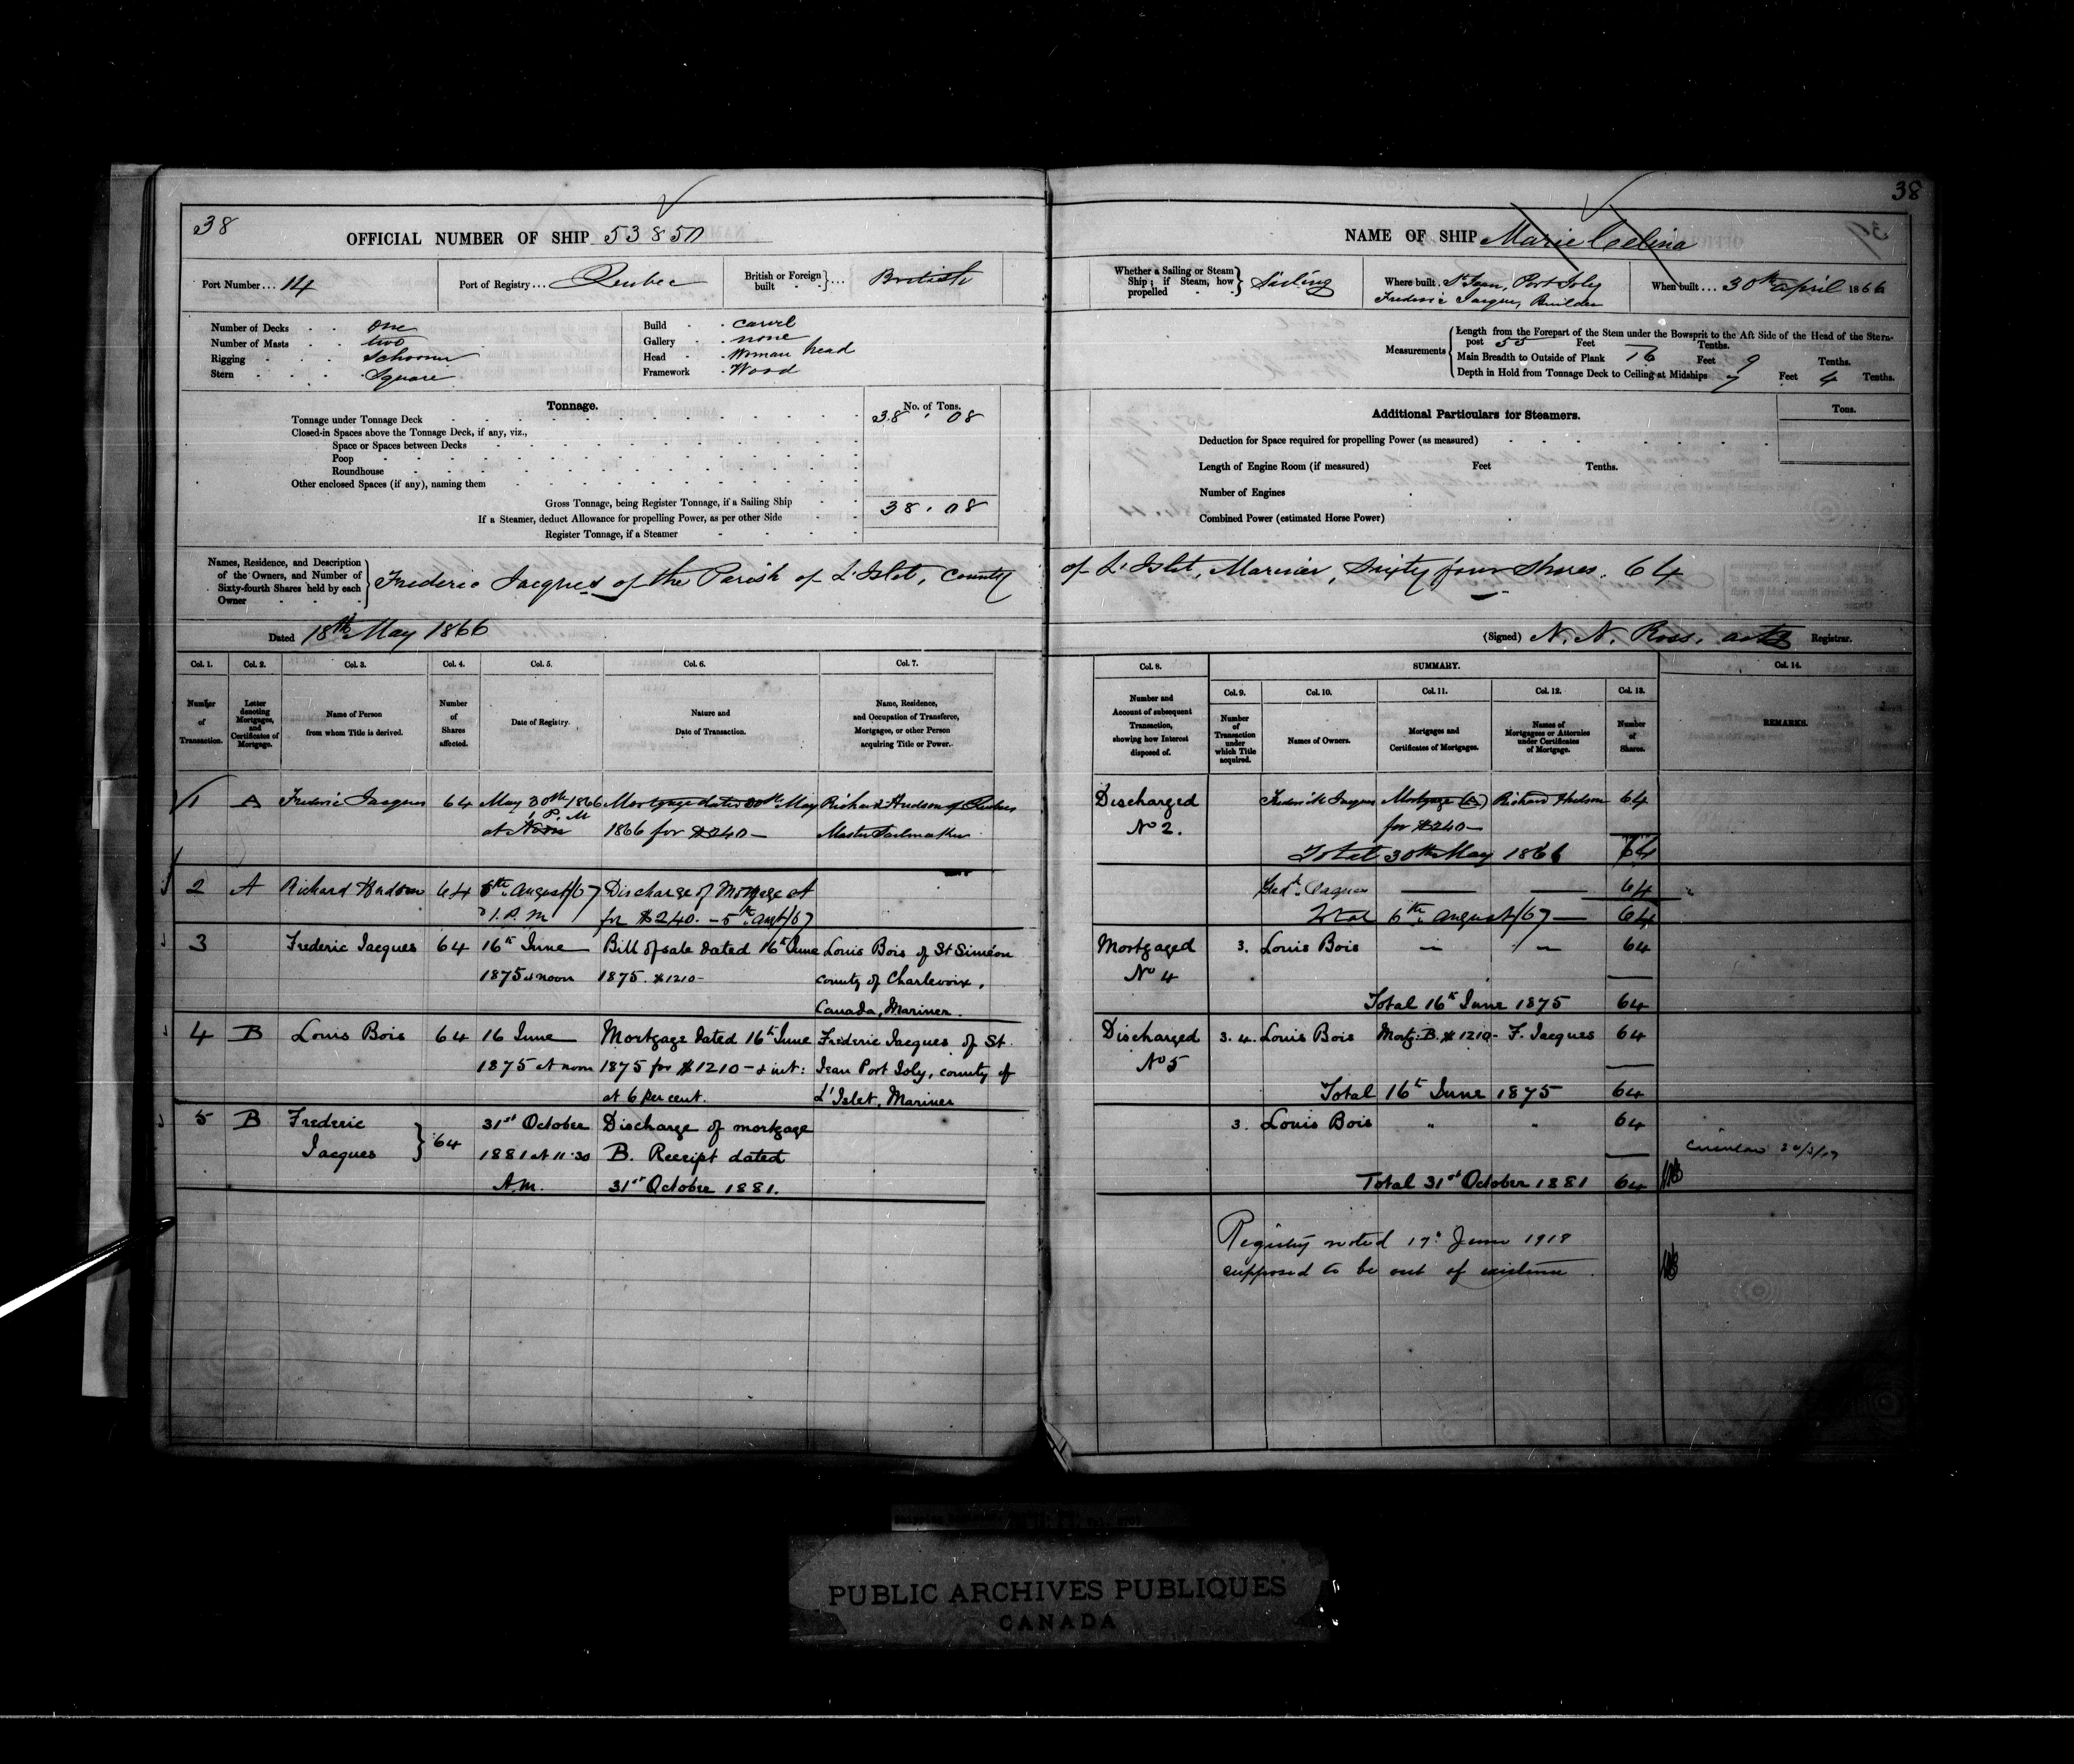 38
OFFICIAL NUMBER OF SHIP 53850
Port Number... 14
Port of Registry... Quebec
British or Foreign built ... British
Number of Decks one
Number of Masts two
Rigging Schooner
Stern Square
Build carvel
Gallery none
Head Woman head
Framework Wood
Tonnage.
No. of Tons.
Tonnage under Tonnage Deck 38.08
Closed-in Spaces above the Tonnage Deck, if any, viz.,
Space or Spaces between Decks
Poop
Roundhouse
Other enclosed Spaces (if any), naming them
Gross Tonnage, being Register Tonnage, if a Sailing Ship 38.08
If a Steamer, deduct Allowance for propelling Power, as per other Side
Register Tonnage, if a Steamer
Names, Residence, and Description of the Owners, and Number of Sixty-fourth Shares held by each Owner
Frederic Jacques of the Parish of L'Islet, County
Dated 18th May 1866
Col. 1. Col. 2. Col. 3. Col. 4. Col. 5. Col. 6. Col. 7.
Number of Transaction.
Letter denoting Mortgages, and Certificates of Mortgage.
Name of Person from whom Title is derived.
Number of Shares affected.
Date of Registry.
Nature and Date of Transaction.
Name, Residence, and Occupation of Transferee, Mortgagee, or other Person acquiring Title or Power.
1 A Frederic Jacques 64 May 30th 1866 Mortgage dated 30th May Richard Hudson of Quebec
1 P.M
at Noon 1866 for $240 — Master Sailmaker
2 A Richard Hudson 64 6th August/67 Discharge of Mortgage at
1. P. M for $240. - 5th Augt/67
3 Frederic Jacques 64 16th June Bill of sale dated 16th June Louis Bois of St Siméon
1875 at noon 1875. $1210- county of Charlevoix,
Canada, Mariner.
4 B Louis Bois 64 16 June Mortgage dated 16th June Frederic Jacques of St
1875 at noon 1875 for $1210 - & int: Jean Port Joly, county of
at 6 per cent. L'Islet, Mariner
5 B Frederic Jacques } 64 31st October Discharge of mortgage
1881 at 11.30 B. Receipt dated
A.M. 31st October 1881.
38
NAME OF SHIP Marie Celina
Whether a Sailing or Steam Ship; if Steam, how propelled Sailing
Where built. St Jean, Port Joly
Frederic Jacques, Builder
When built... 30th April 1866
Measurements
Length from the Forepart of the Stem under the Bowsprit to the Aft Side of the Head of the Stern-
post 55 Feet Tenths.
Main Breadth to Outside of Plank 16 Feet 9 Tenths.
Depth in Hold from Tonnage Deck to Ceiling at Midships 7 Feet 4 Tenths.
Additional Particulars for Steamers.
Tons.
Deduction for Space required for propelling Power (as measured)
Length of Engine Room (if measured) Feet Tenths.
Number of Engines
Combined Power (estimated Horse Power)
of L'Islet, Mariner, Sixty four Shares. 64
(Signed) N. N. Ross, actg Registrar.
Col. 8. SUMMARY. Col. 14.
Col. 9. Col. 10. Col. 11. Col. 12. Col. 13.
Number and Account of subsequent Transaction, showing how Interest disposed of.
Number of Transaction under which Title acquired.
Names of Owners.
Mortgages and Certificates of Mortgages.
Names of Mortgagees or Attornies under Certificates of Mortgage.
Number of Shares.
REMARKS.
Discharged Frederick Jacques Mortgage (A) Richard Hudson 64
No 2. for $240 —
Total 30th May 1866 64
Fredk. Jacques — — 64
Total 6th August/67 — 64
Mortgaged 3. Louis Bois — — 64
No 4
Total 16th June 1875 64
Discharged 3. 4. Louis Bois Mortg: B. $1210- F. Jacques 64
No 5
Total 16th June 1875 64
3. Louis Bois " " 64
Total 31st October 1881 64
Registry noted 17th June 1918
supposed to be out of existence
PUBLIC ARCHIVES PUBLIQUES
CANADA